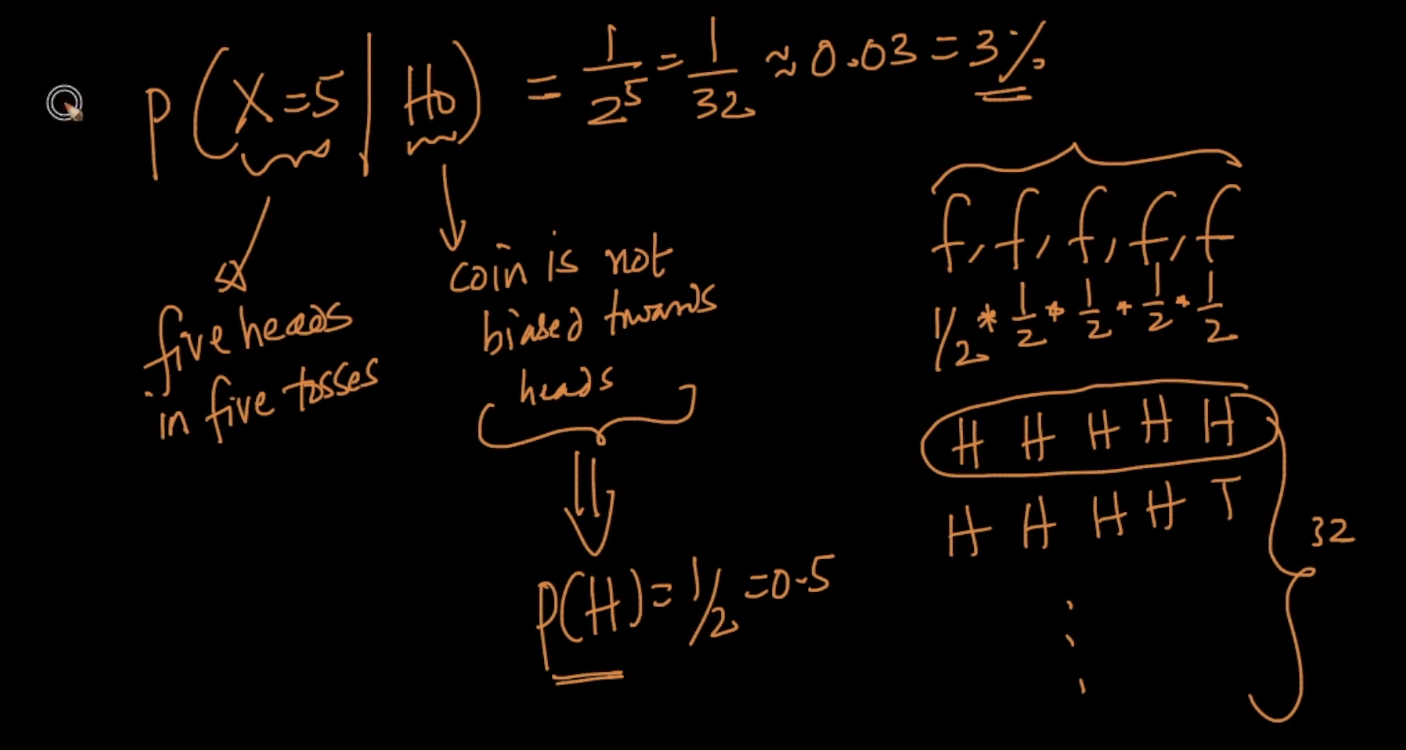 P(X=5 | H0) = 1/2^5 = 1/32 ≈ 0.03 = 3%
five heads
in five tosses
coin is not
biased towards
heads
P(H) = 1/2 = 0.5
f, f, f, f, f
1/2 * 1/2 * 1/2 * 1/2 * 1/2
H H H H H
H H H H T
⋮
32